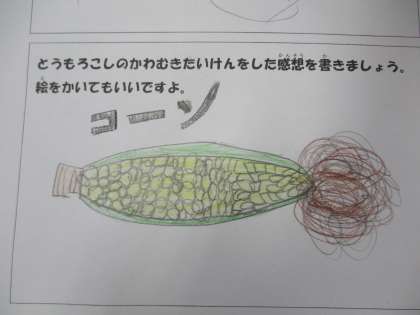 とうもろこしのかわむきたいけんをした感想を書きましょう。
絵をかいてもいいですよ。
コーン